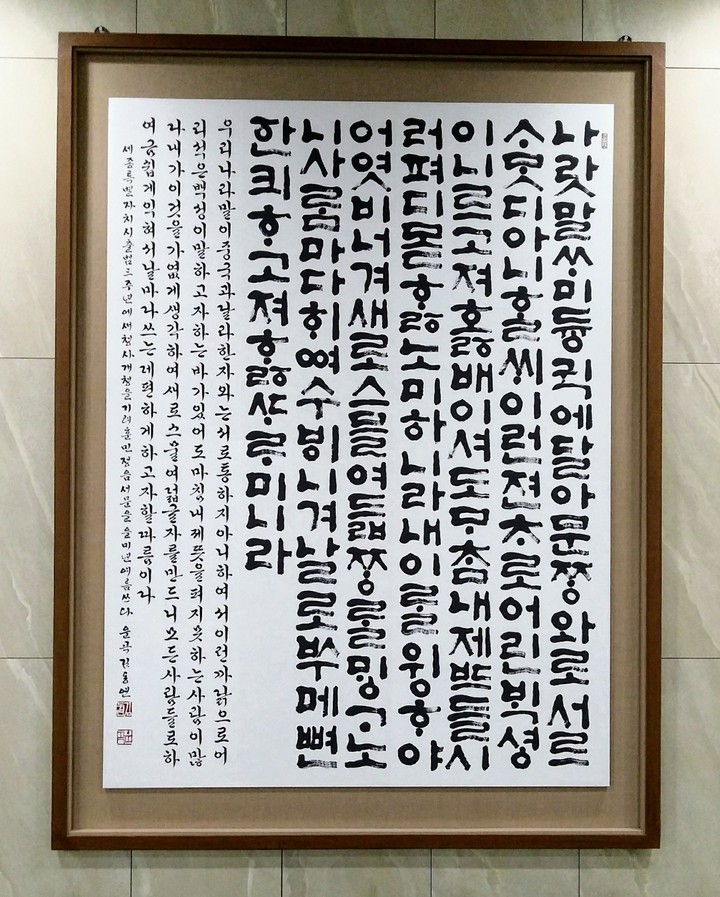 나랏말ᄊᆞ미듕귁에달아문ᄍᆞᆼ와로서르
ᄉᆞᄆᆞᆺ디아니ᄒᆞᆯᄊᆡ이런젼ᄎᆞ로어린ᄇᆡᆨ셩
이니르고져호ᇙ배이셔도ᄆᆞᄎᆞᆷ내제ᄠᅳ들시
러펴디몯ᄒᆞᇙ노미하니라내이ᄅᆞᆯ윙ᄒᆞ야
어엿비너겨새로스믈여듧ᄍᆞᆼᄅᆞᆯᄆᆡᇰᄀᆞ노
니사ᄅᆞᆷ마다ᄒᆡᅇᅧ수ᄫᅵ니겨날로ᄡᅮ메뼌
한킈ᄒᆞ고져ᄒᆞᇙᄯᆞᄅᆞ미니라
우리나라말이중국과달라한자와는서로통하지아니하여서이런까닭으로어
리석은백성이말하고자하는바가있어도마침내제뜻을펴지못하는사람이많
다내가이것을가엾게생각하여새로스물여덟글자를만드니모든사람들로하
여금쉽게익혀서날마다쓰는데편하게하고자할따름이다
세종특별자치시출범三주년에새청사개청을기려훈민정음서문을을미년여름쓰다 운곡김동연